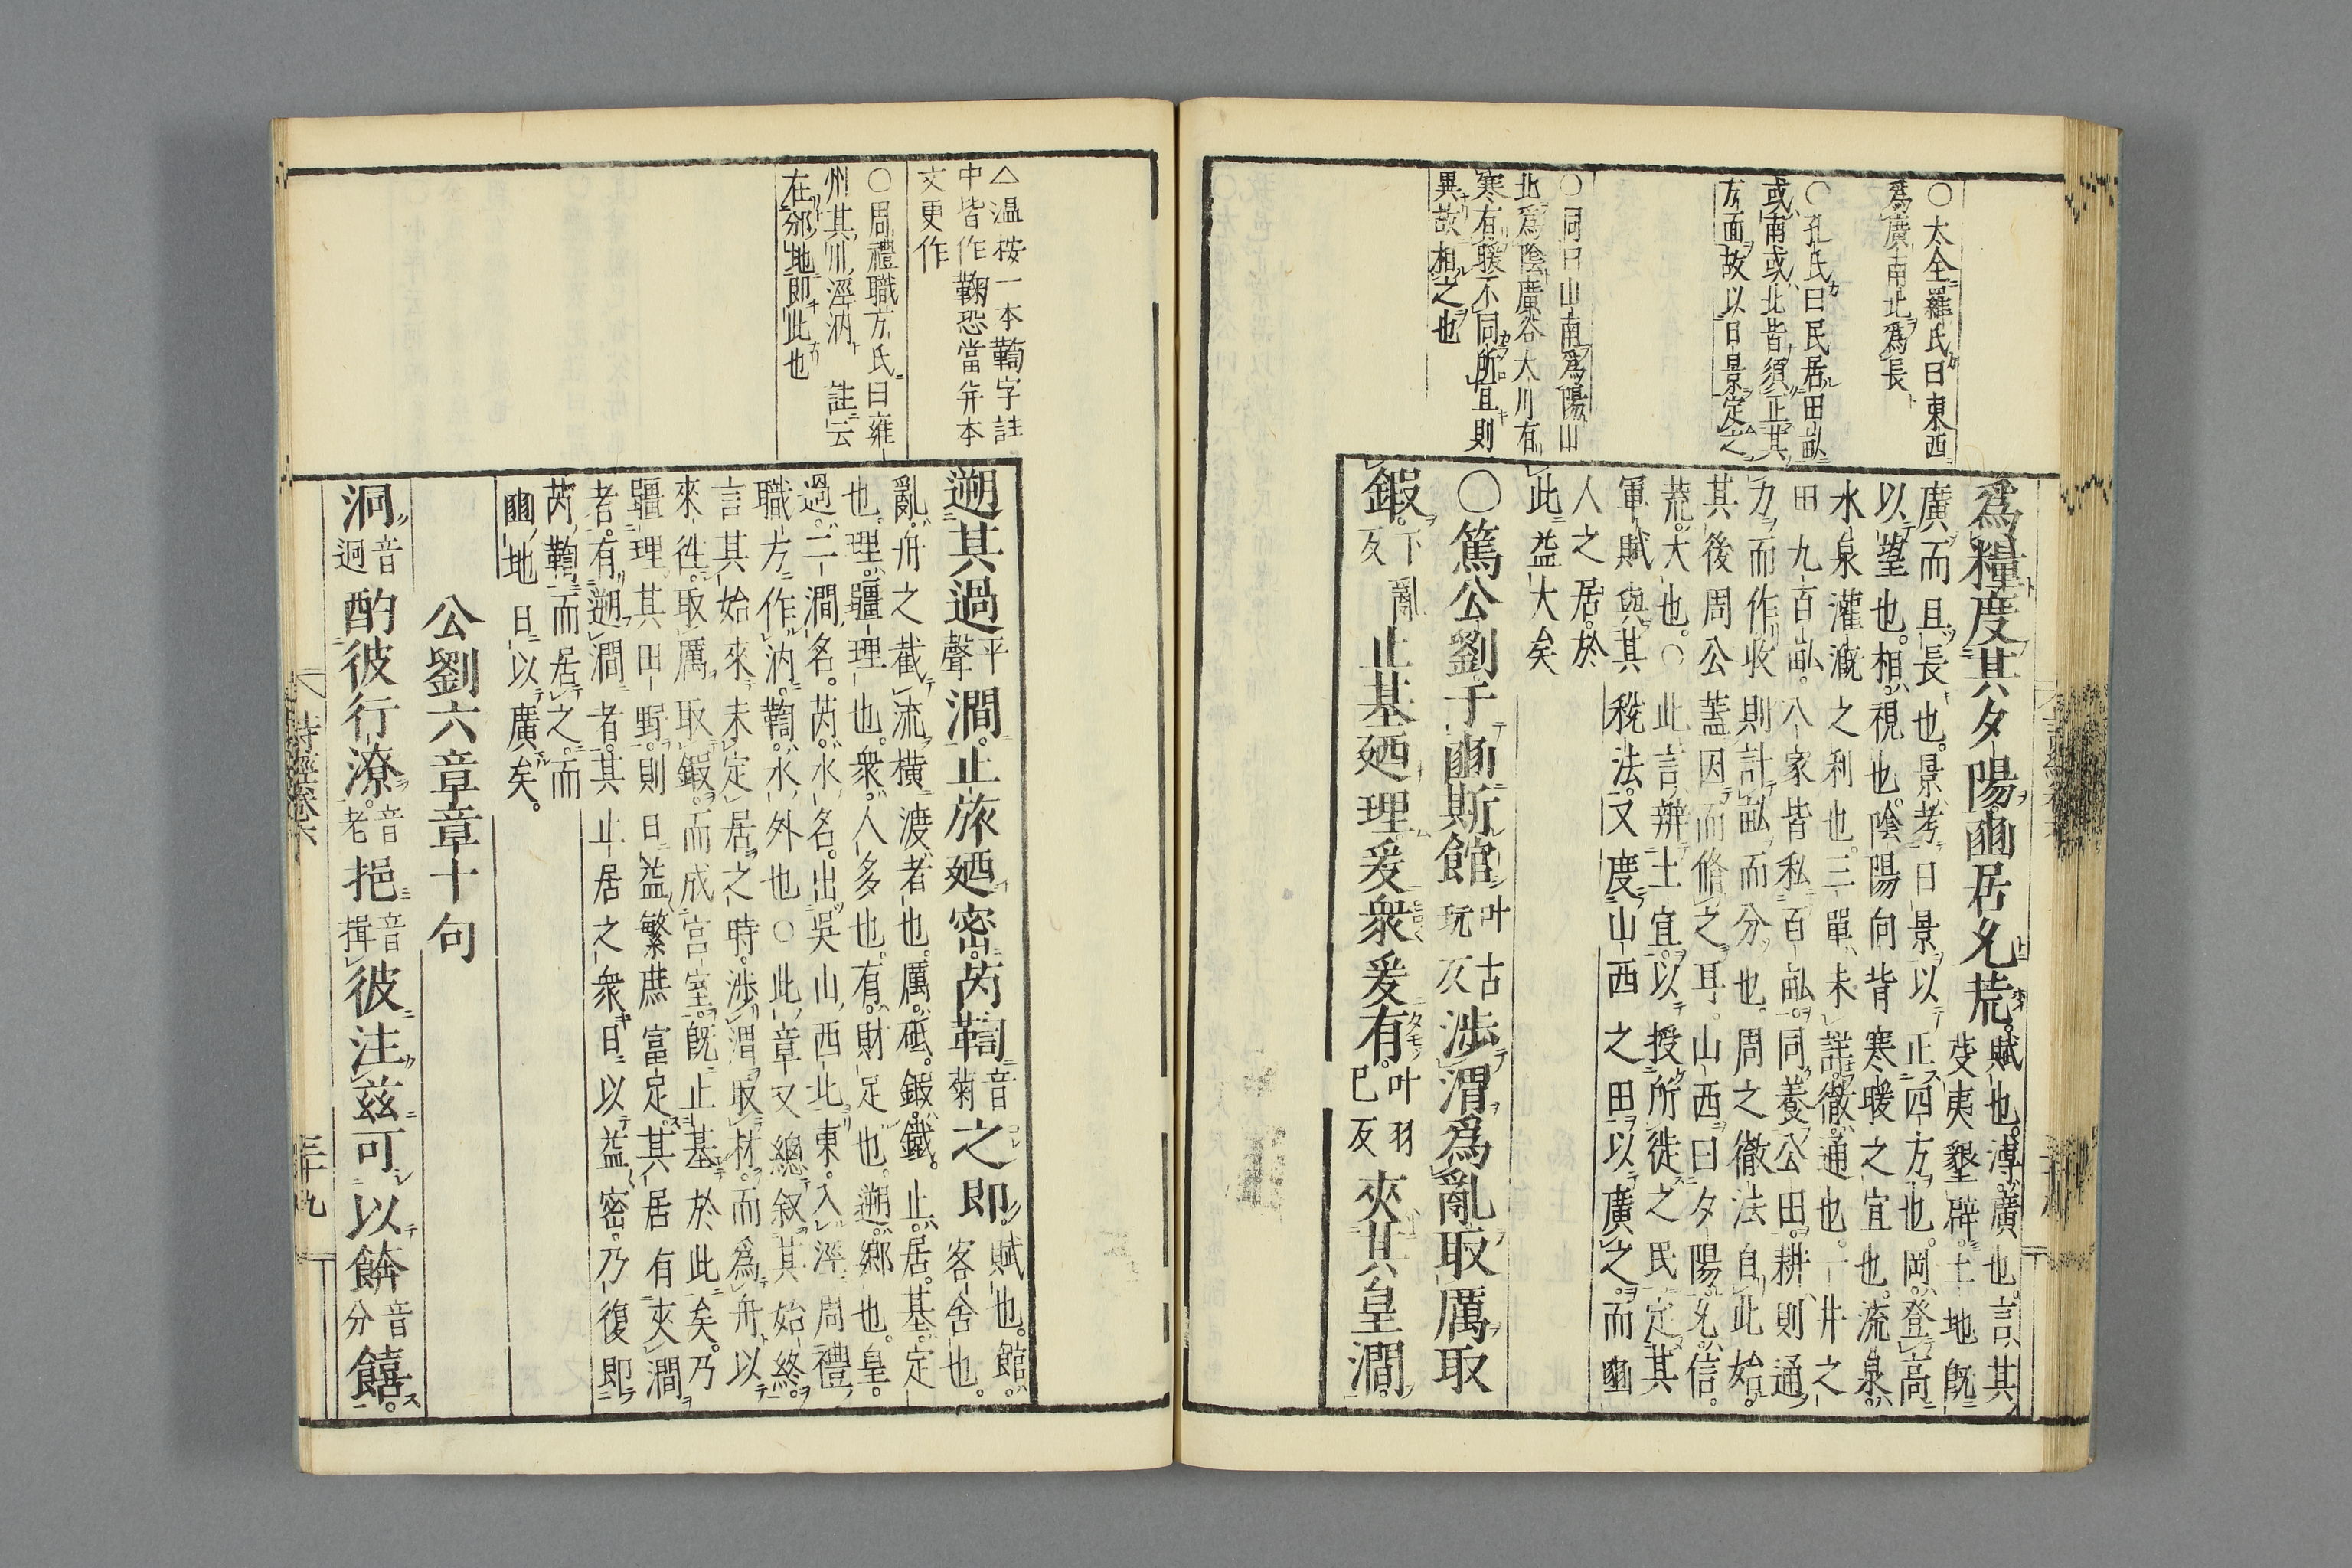 ○大全羅氏曰東西
爲廣南北爲長
○孔氏曰民居田畝
或南或北皆須正其
方面故以日景定之
○同曰山南爲陽山
北爲陰廣谷大川有
寒有暖不同所宜則
異故相之也
爲糧度其夕陽豳居允荒賦也溥廣也言其
芟夷墾辟土地既
廣而且長也景考日景以正四方也岡登高
以望也相視也陰陽向背寒暖之宜也流泉
水泉灌溉之利也三單未詳徹通也一井之
田九百畝八家皆私百畝同養公田耕則通
力而作收則計畝而分也周之徹法自此始
其後周公蓋因而脩之耳山西曰夕陽允信
荒大也○此言辨土宜以授所徙之民定其
軍賦與其稅法又度山西之田以廣之而豳
人之居於
此益大矣
○篤公劉于豳斯館叶古玩反涉渭爲亂取厲取
鍛下亂反止基廼理爰衆爰有叶羽已反夾其皇澗
△温按一本鞫字註
中皆作鞠恐當并本
文更作
○周禮職方氏曰雍
州其川涇汭 註云
在邠地即此也
遡其過平聲澗止旅廼密芮鞫音菊之即賦也館
客舍也
亂舟之截流橫渡者也厲砥鍛鐵止居基定
也理疆理也衆人多也有財足也遡鄉也皇
過二澗名芮水名出吳山西北東入涇周禮
職方作汭鞫水外也○此章又總叙其始終
言其始來未定居之時涉渭取材而爲舟以
來往取厲取鍛而成宮室既止基於此矣乃
疆理其田野則日益繁庶富足其居有夾澗
者有遡澗者其止居之衆日以益密乃復即
芮鞫而居之而
豳地日以廣矣
公劉六章章十句
泂音迥酌彼行潦音老挹音揖彼注茲可以餴音分饎
詩經卷六
三十九